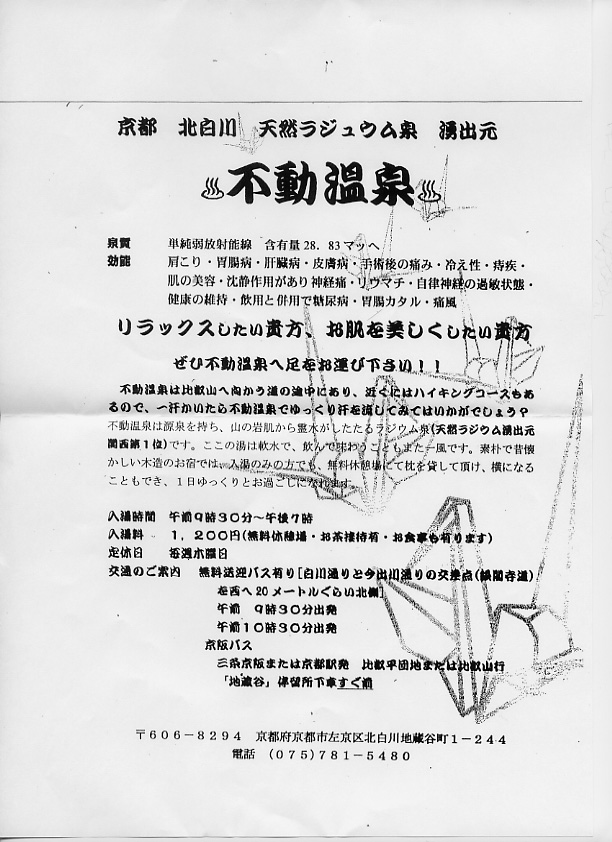 京都 北白川 天然ラジュウム泉 湧出元
♨不動温泉♨
泉質 単純弱放射能線 含有量28.83マッヘ
効能 肩こり・胃腸病・肝臓病・皮膚病・手術後の痛み・冷え性・痔疾・
肌の美容・沈静作用があり神経痛・リウマチ・自律神経の過敏状態・
健康の維持・飲用と併用で糖尿病・胃腸カタル・痛風
リラックスしたい貴方、お肌を美しくしたい貴方
ぜひ不動温泉へ足をお運び下さい！！
不動温泉は比叡山へ向かう道の途中にあり、近くにはハイキングコースもあ
るので、一汗かいたら不動温泉でゆっくり汗を流してみてはいかがでしょう？
不動温泉は源泉を持ち、山の岩肌から霊水がしたたるラジウム泉(天然ラジウム湧出元
関西第1位)です。ここの湯は軟水で、飲んで味わうこともまた一風です。素朴で昔懐
かしい木造のお宿では、入湯のみの方でも、無料休憩場にて枕を貸して頂け、横になる
こともでき、1日ゆっくりとお過ごしになれます。
入湯時間 午前9時30分～午後7時
入湯料 1,200円(無料休憩場・お茶接待有・お食事も有ります)
定休日 毎週木曜日
交通のご案内 無料送迎バス有り[白川通りと今出川通りの交差点(銀閣寺道)
を西へ20メートルぐらい北側]
午前 9時30分出発
午前10時30分出発
京阪バス
三条京阪または京都駅発 比叡平団地または比叡山行
「地蔵谷」停留所下車すぐ前
〒606-8294 京都府京都市左京区北白川地蔵谷町1-244
電話 (075)781-5480